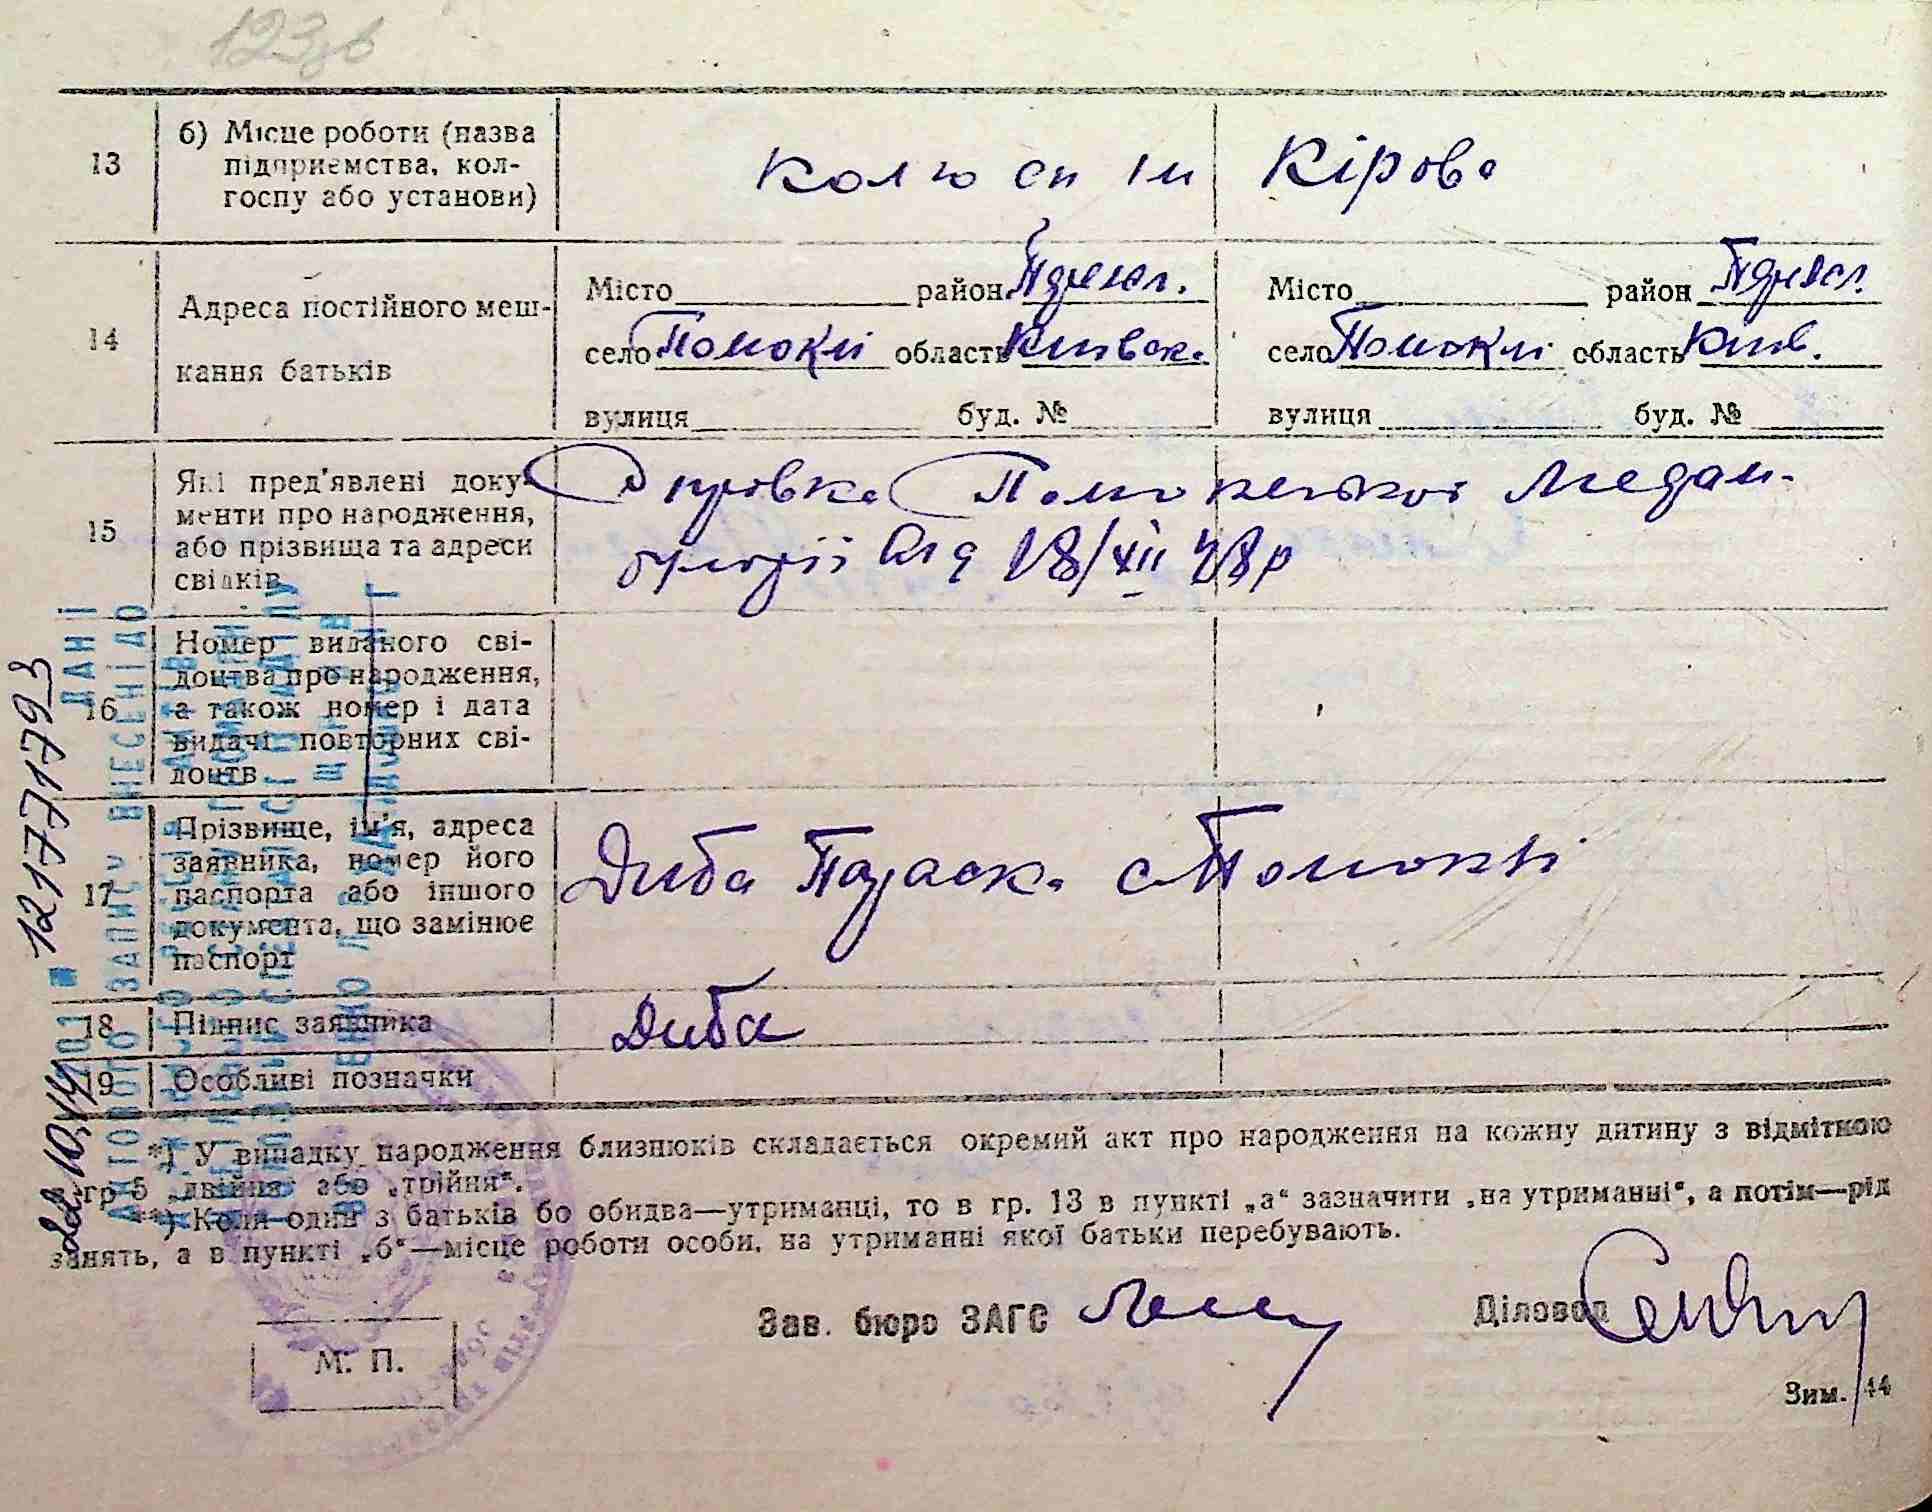 123зв
13 б) Місце роботи (назва підприємства, колгоспу або установи)
Колгосп ім Кірова
14 Адреса постійного мешкання батьків
Місто район
село Помоклі область Київськ.
вулиця буд. №
Місто район
село Помоклі область Київ.
вулиця буд. №
15 Які пред'явлені документи про народження, або прізвища та адреси свідків
Довідка Помокельської Медам-
булторії від 18/XII 48р
16 Номер виданого свідоцтва про народження, а також номер і дата видачі повторних свідоцтв
17 Прізвище, ім'я, адреса заявника, номер його паспорта або іншого документа, що замінює паспорт
Диба Параск. с Помоклі
18 Підпис заявника
Диба
19 Особливі позначки
*) У випадку народження близнюків складається окремий акт про народження на кожну дитину з відміткою
в гр 5 „двійня" або „трійня".
**) Коли один з батьків бо обидва—утриманці, то в гр. 13 в пункті „а" зазначити „на утриманні", а потім—рід
занять, а в пункті „б"—місце роботи особи, на утриманні якої батьки перебувають.
Зав. бюро ЗАГС
Діловод
М. П.
Зим. 44
ДАНІ
ВНЕСЕНІ ДО
22.10.14
121771793